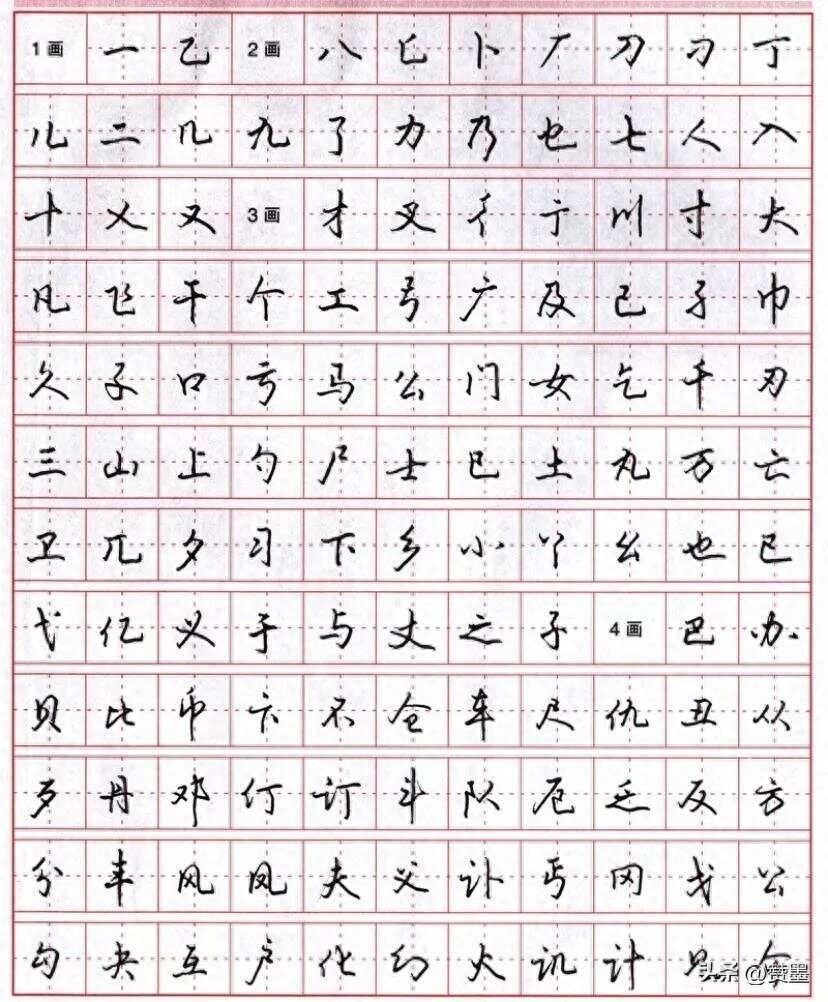 1画 一 乙 2画 八 匕 卜 厂 刀 刁 丁
儿 二 几 九 了 力 乃 乜 七 人 入
十 乂 又 3画 才 叉 彳 亍 川 寸 大
凡 飞 干 个 工 弓 广 及 己 孑 巾
久 孓 口 亏 马 么 门 女 乞 千 刃
三 山 上 勺 尸 士 巳 土 丸 万 亡
卫 兀 夕 习 下 乡 小 丫 幺 也 已
弋 亿 义 于 与 丈 之 子 4画 巴 办
贝 比 币 卞 不 仓 车 尺 仇 丑 从
歹 丹 邓 仃 订 斗 队 厄 乏 反 方
分 丰 风 凤 夫 父 讣 丐 冈 戈 公
勾 夬 互 户 化 幻 火 讥 计 见 今
头条 @赞墨